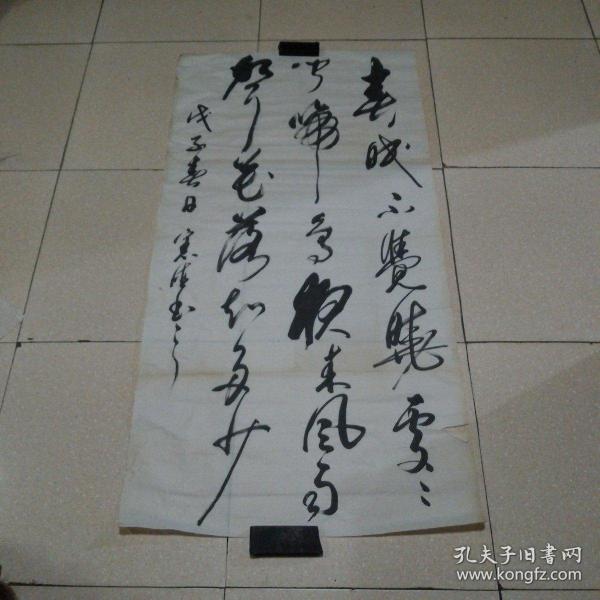 春眠不覺曉處々
聞啼鳥夜来風雨
聲花落知多少
戊子春日
孔夫子旧書网
www.kongfz.com